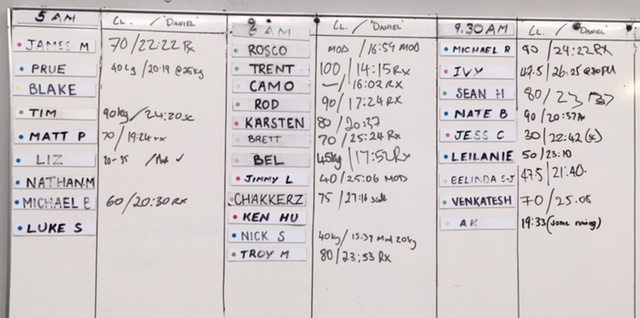 5 AM LL. / "DANIEL"
JAMES M 70/22:22 Rx
PRUE 40kg / 20:19 @25kg
BLAKE
TIM 90kg / 24:20sc
MATT P 70 / 19:24 Rx
LIZ 20-35 / Mod ✓
NATHAN.M
MICHAEL B 60/20:30 RX
LUKE S
AM LL. / "DANIEL"
ROSCO MOD / 16:59 MOD
TRENT 100 / 14:15 Rx
CAMO — / 16:02 RX
ROD 90 / 17:24 RX
KARSTEN 80 / 20:37
BRETT 70 / 25:24 Rx
BEL 45kg / 17:52 Rx
JIMMY L 40/25:06 MOD
CHAKKERZ 75 / 27:16 scale
KEN HU
NICK S 40kg / 15.37 Mod 20kg
TROY M 80/23:53 RX
9.30 AM LL. / "DANIEL"
MICHAEL R 90 / 24:22 RX
IVY 47.5 / 26:25 @30
SEAN H 80 / 23
NATE B 90 / 20:37
JESS C 30/22:42 (sc)
LEILANIE 50 / 23:10
BELINDA S-J 47.5 / 21:40.
VENKATESH 70 / 25.08
AK 19:33 (some rowing)